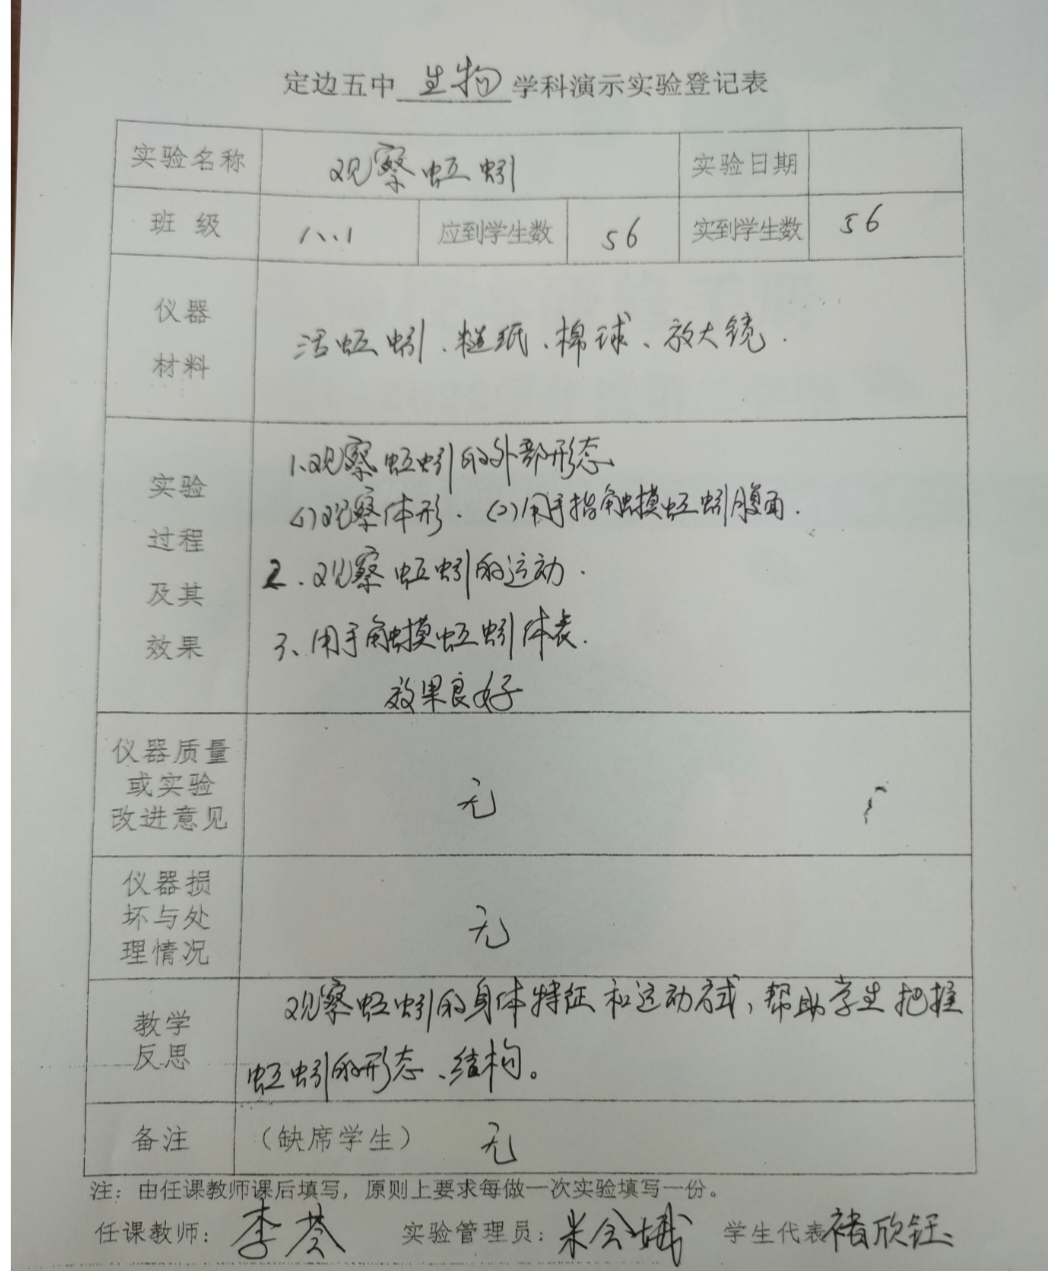 定边五中 生物 学科演示实验登记表
实验名称 观察蚯蚓 实验日期
班 级 八.1 应到学生数 56 实到学生数 56
仪器
材料
活蚯蚓、糙纸、棉球、放大镜.
实验
过程
及其
效果
1.观察蚯蚓的外部形态
(1)观察体形. (2)用手指触摸蚯蚓腹面.
2.观察蚯蚓的运动.
3、用手触摸蚯蚓体表.
效果良好
仪器质量
或实验
改进意见
无
仪器损
坏与处
理情况
无
教学
反思
观察蚯蚓的身体特征和运动方式,帮助学生把握
蚯蚓的形态、结构。
备注 (缺席学生) 无
注：由任课教师课后填写，原则上要求每做一次实验填写一份。
任课教师：李 实验管理员：米会 学生代表褚欣钰